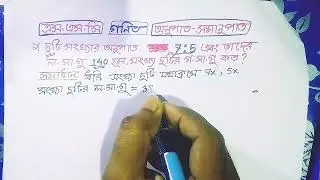 এস.এস.সি গনিত অনুপাত-সমানুপাত
দুটি সংখ্যার অনুপাত 7:5 এবং তাদের
ল.সা.গু 140 হলে সংখ্যা দুটির গ.সা.গু কত?
সমাধান: ধরি সংখ্যা দুটি যথাক্রমে 7x, 5x
সংখ্যা দুটির ল.সা.গু = 35